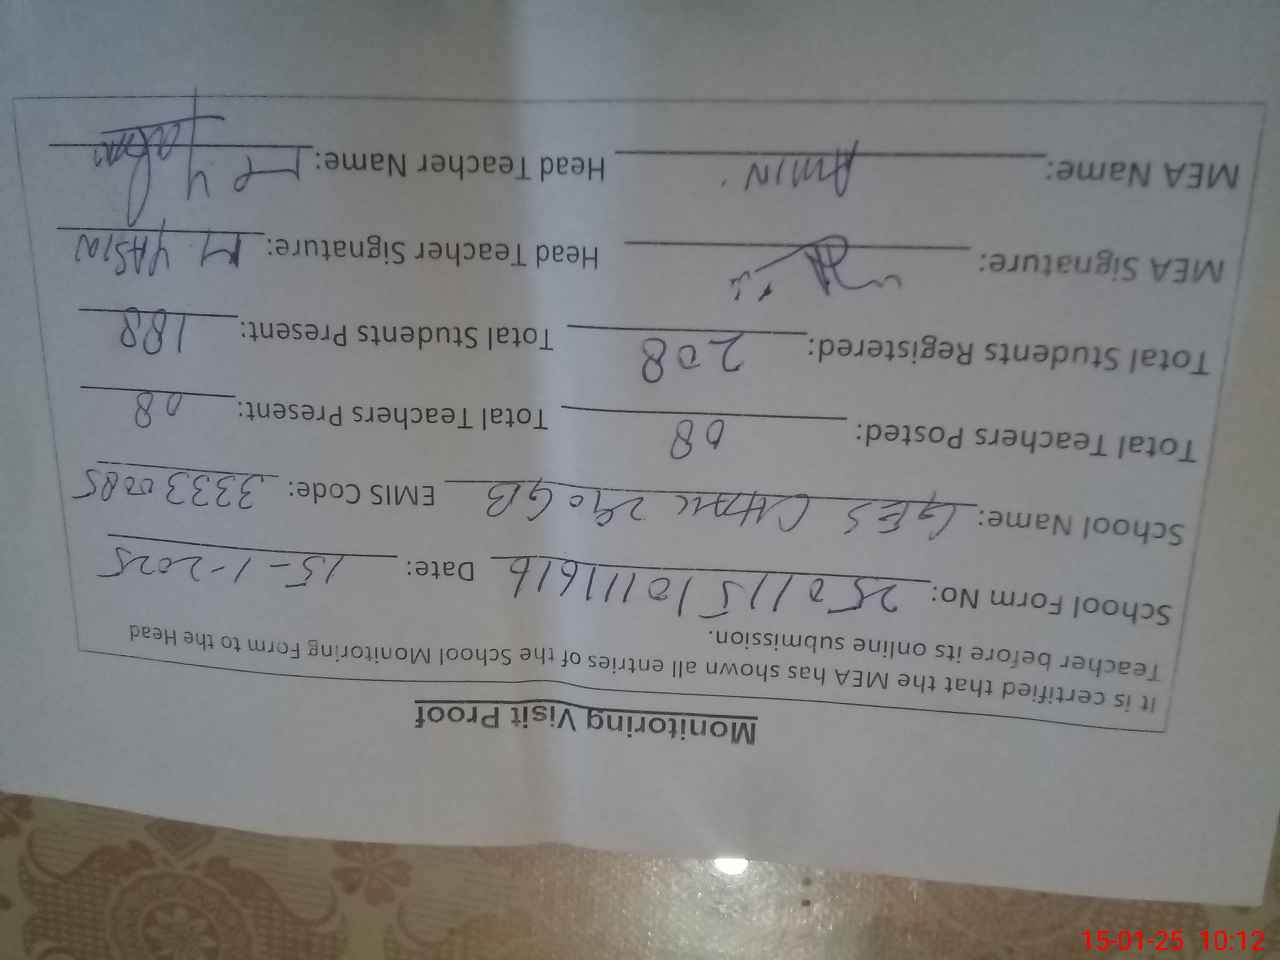 Monitoring Visit Proof
It is certified that the MEA has shown all entries of the School Monitoring Form to the Head
Teacher before its online submission.
School Form No: 250115101111616 Date: 15-1-2025
School Name: GES CHAK 290 GB EMIS Code: 33330085
Total Teachers Posted: 08 Total Teachers Present: 08
Total Students Registered: 208 Total Students Present: 188
MEA Signature: Head Teacher Signature: M YASIN
MEA Name: AMIN Head Teacher Name:
15-01-25 10:12